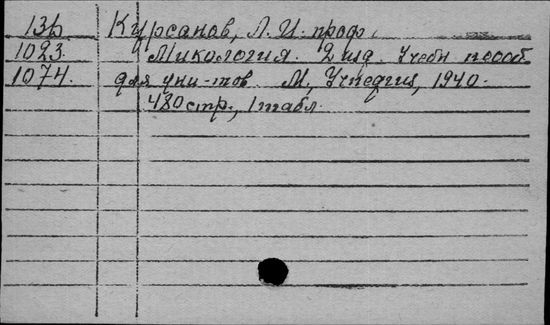 13b Курсанов, Л. И. проф.
1023. Микология. 2 изд. Учебн пособ.
1074. для уни-тов М., Учпедгиз, 1940.
480 стр., 1 табл.